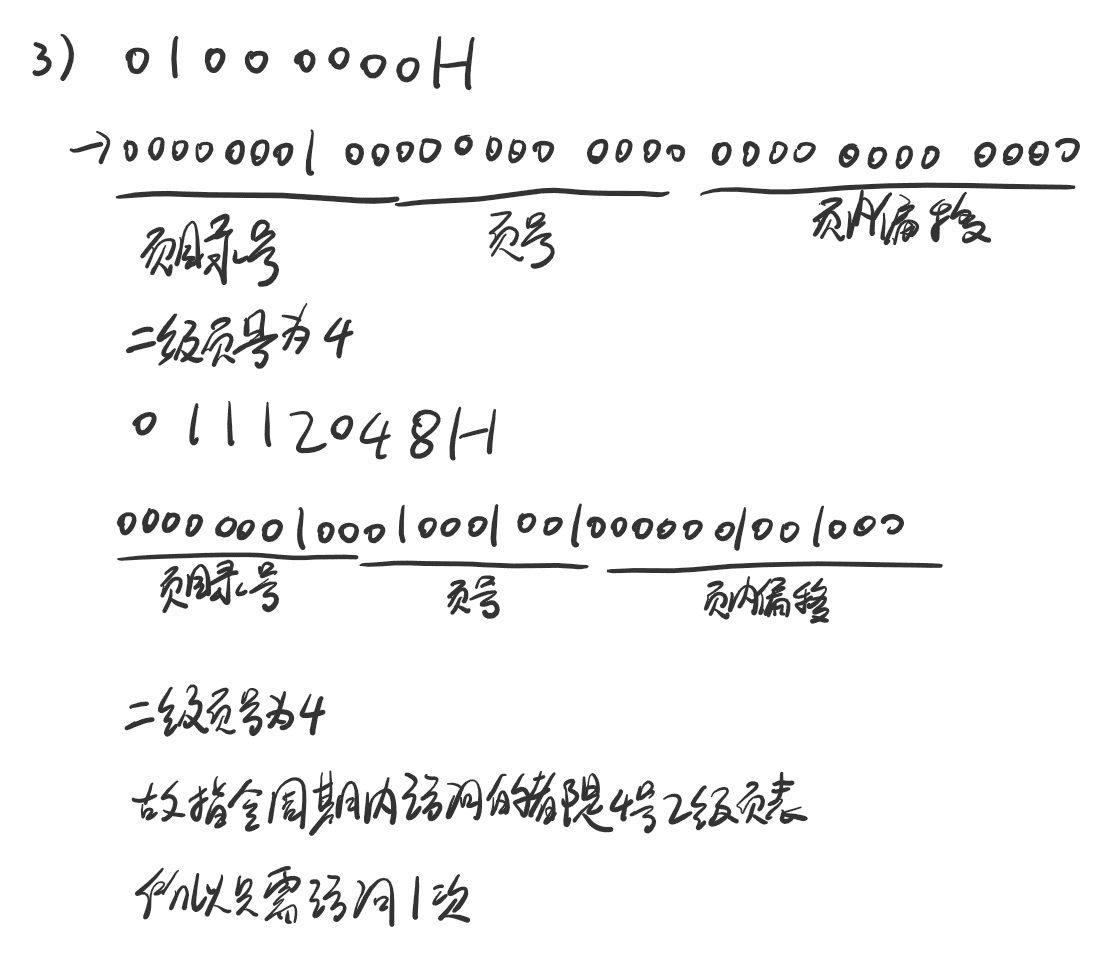 3) 0100 0000H
→ 0000 0001 0000 0000 0000 0000 0000 0000
页目录号 页号 页内偏移
二级页号为4
01112048H
0000 0001 0001 0001 0010 0000 0100 1000
页目录号 页号 页内偏移
二级页号为4
故指令周期内访问的都是4号2级页表
所以只需访问1次